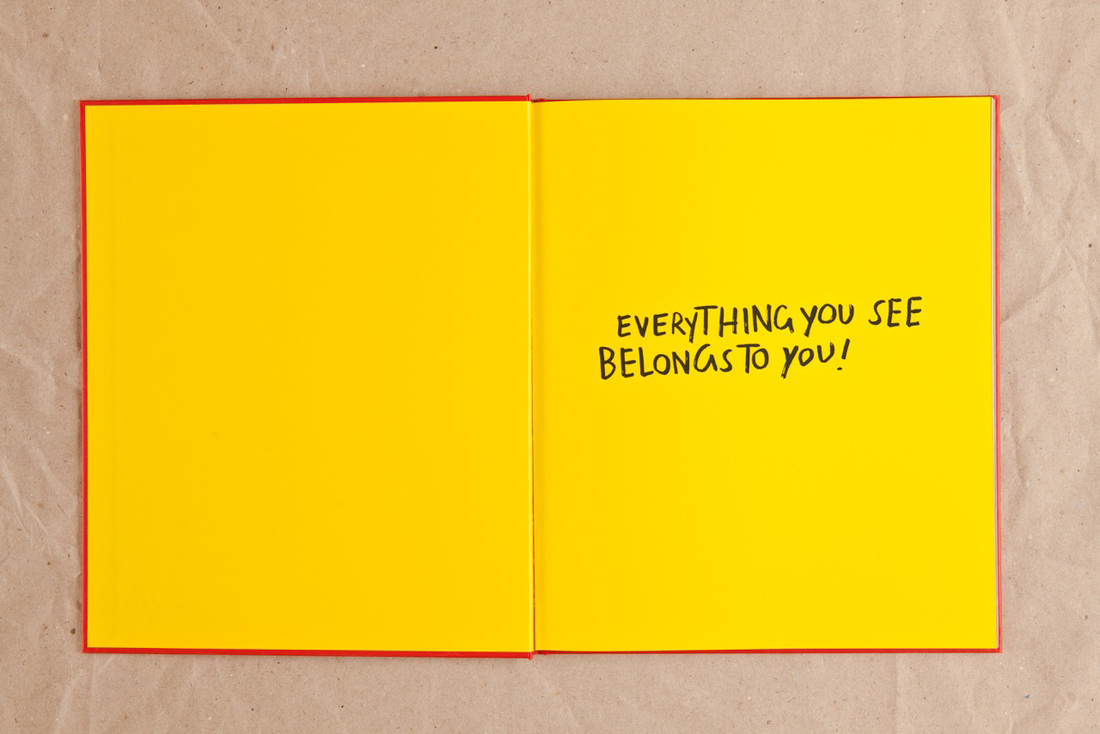 EVERYTHING YOU SEE
BELONGS TO YOU!